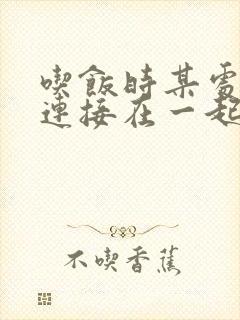 喫飯時某處
連接在一起
不喫香蕉